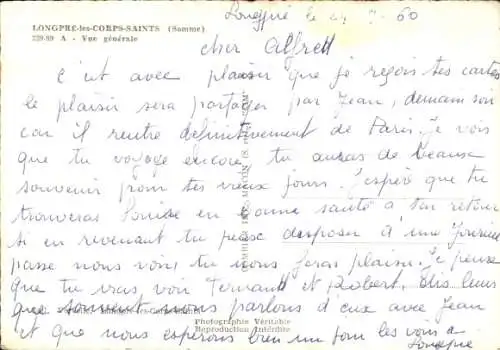 Longpré le 24 60
LONGPRÉ-les-CORPS-SAINTS (Somme)
229-89 A - Vue générale
cher Alfrett
c'est avec plaisir que je reçois tes cartes
le plaisir sera partager par Jean, demain soir
car il rentre definitivement de Paris. Je vois
que tu voyage encore, tu auras de beaux
souvenir pour tes vieux jours. J'espère que tu
trouveras Louise en bonne santé a ton retour
si en revenant tu peux disposer d'une journée
passe nous voir, tu nous feras plaisir. Je pense
que tu vas voir Fernand et Robert, dis leurs
que souvent nous parlons d'eux avec Jean
et que nous espérons bien un jour les voir a
Longpré
Photographie Véritable
Reproduction Interdite